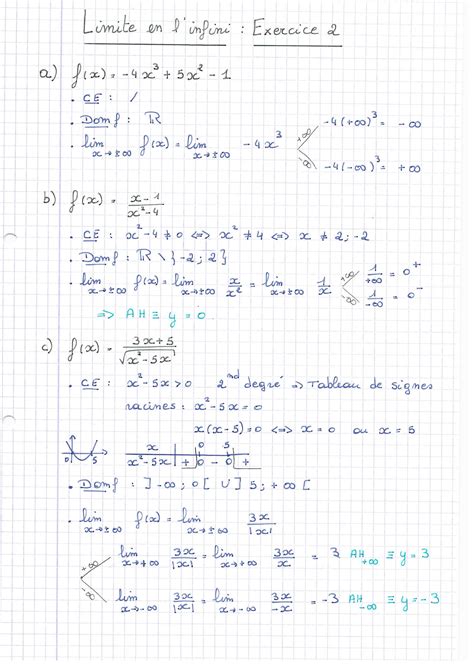 Limite en l'infini : Exercice 2
a) f(x) = -4x³ + 5x² - 1
. CE : /
. Domf : ℝ
. lim x→±∞ f(x) = lim x→±∞ -4x³
+∞ -4(+∞)³ = -∞
-∞ -4(-∞)³ = +∞
b) f(x) = (x-1)/(x²-4)
. CE : x²-4 ≠ 0 <=> x² ≠ 4 <=> x ≠ 2 ; -2
. Domf : ℝ \ {-2 ; 2}
. lim x→±∞ f(x) = lim x→±∞ x/x² = lim x→±∞ 1/x
+∞ 1/+∞ = 0⁺
-∞ 1/-∞ = 0⁻
=> AH ≡ y = 0
c) f(x) = (3x+5)/√(x²-5x)
. CE : x²-5x > 0 2nd degré => Tableau de signes
racines : x²-5x = 0
x(x-5) = 0 <=> x = 0 ou x = 5
0 5
x | 0 5
x²-5x | + 0 - 0 +
. Domf : ]-∞ ; 0[ U ]5 ; +∞[
. lim x→±∞ f(x) = lim x→±∞ 3x/|x|
+∞ lim x→+∞ 3x/|x| = lim x→+∞ 3x/x = 3 AH+∞ ≡ y = 3
-∞ lim x→-∞ 3x/|x| = lim x→-∞ 3x/-x = -3 AH-∞ ≡ y = -3